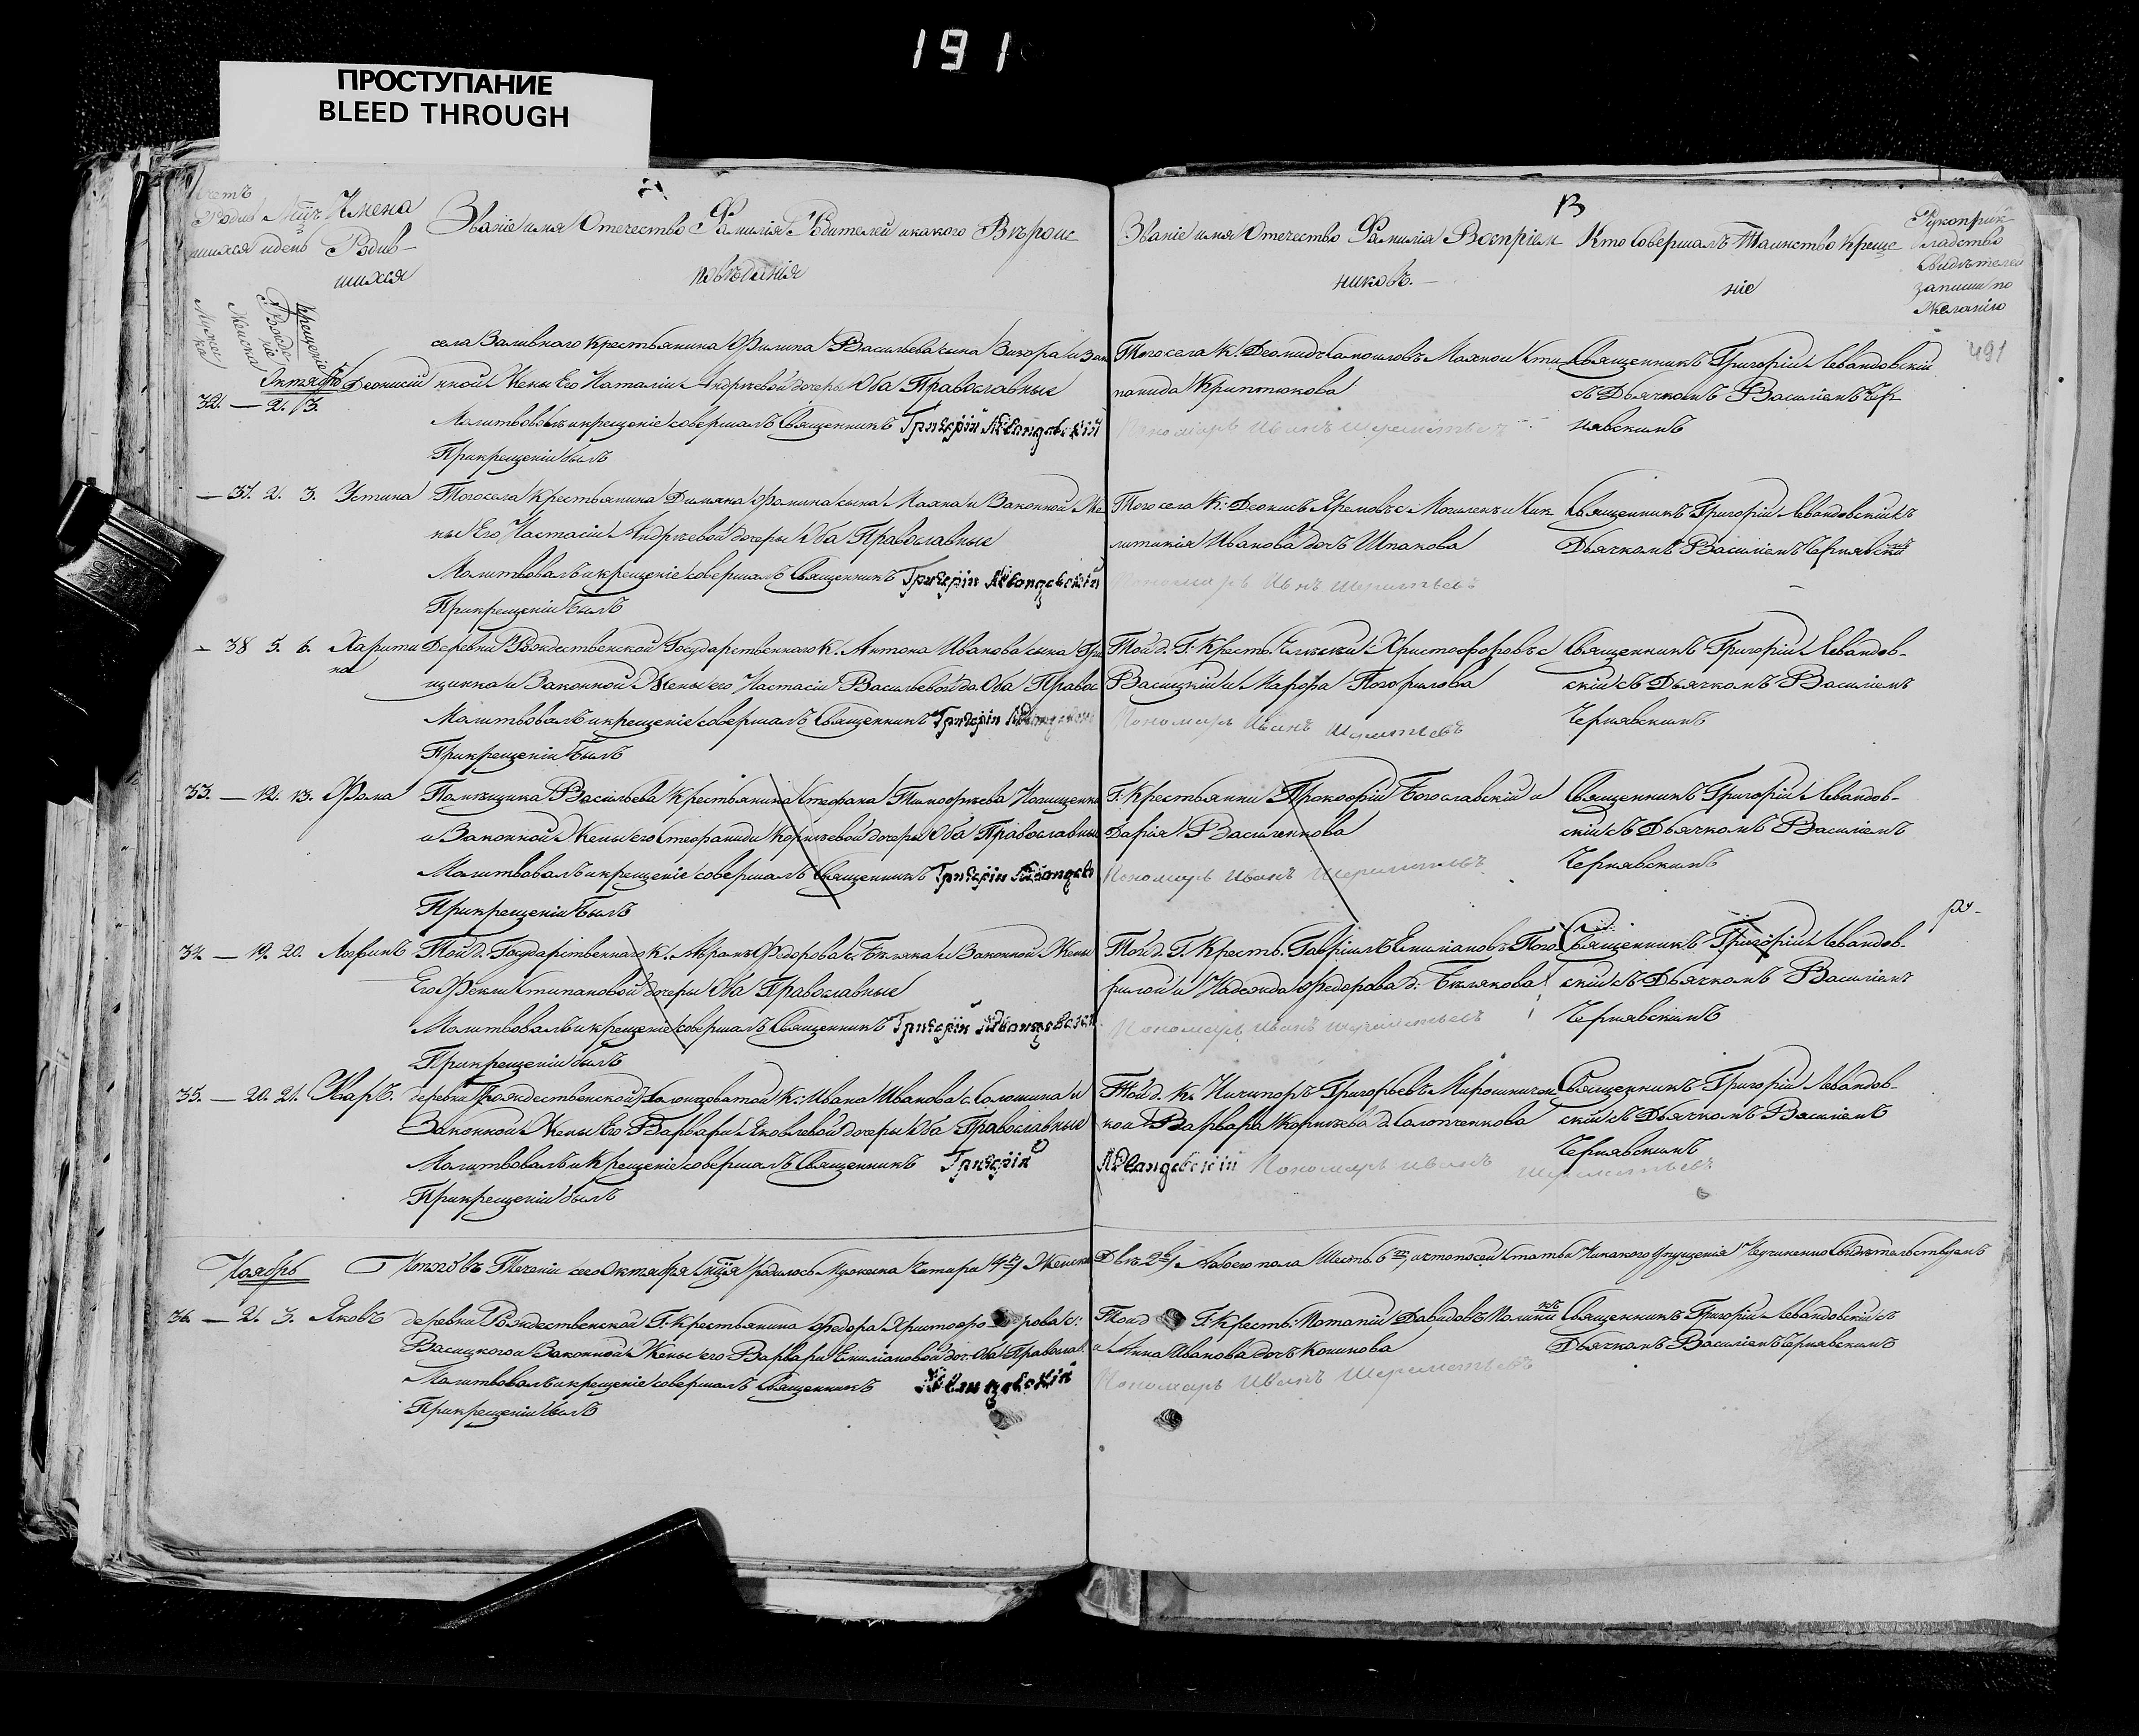 191
ПРОСТУПАНИЕ
BLEED THROUGH
Счетъ Родив шихся
Мцъ и день
Имена Родив- шихся
Званіе имя Отечество Фамилія Родителей и какого Вѣроис
повѣданія
Званіе имя Отечество Фамилія Воспріем
никовъ.
Кто Совершалъ Таинство Креще
ніе
Рукоприк-
ладство
Свидѣтелей
записи по
Желанію
Мужеска
Женска
Рожденіе
Крещеніе
491
Октябрь
32. — 2. 3. Деонисій
села Заливнаго крестьянина Филипа Васильева сына и Зако
нной Жены Его Наталіи Андрѣевой дочеры Оба Православные
Молитвовалъ и крещеніе совершалъ Священникъ Григорій Левандовскій
При крещеніи былъ
Того села К. Леонидъ Самоиловъ и Сти
панида
Пономарь Иванъ Шереметьевъ
Священникъ Григорій Левандовскій
съ Дьячкомъ Василіемъ Чер
нявскимъ
— 37. 2. 3. Устина
Того села Крестьянина Сына Махна и Законной Же
ны Его Настасіи Андрѣевой дочеры Оба Православные
Молитвовалъ и крещеніе совершалъ Священникъ Григорій Левандовскій
При крещеніи былъ
Того села К: Деонисъ Яремовъ с.
Иванова дочь Шпакова
Пономарь Иванъ Шереметьевъ
Священникъ Григорій Левандовскій съ
Дьячкомъ Василіемъ Чернявскимъ
— 38 5. 6. Харити
на
Деревни Рождественской Государственнаго К. Антона Иванова сына Гри
щинка и Законной Жены его Настасіи Васильевой до. Оба Правос
Молитвовалъ и крещеніе совершалъ Священникъ Григорій Левандовскій
При крещеніи былъ
Той д. Г: Кресть. Алексѣй Христофоровъ с
Васицкій и Марфа Погорилова
Пономарь Иванъ Шереметьевъ
Священникъ Григорій Левандов-
скій съ Дьячкомъ Василіемъ
Чернявскимъ
33. — 12. 13. Фома
Помѣщика Васильева Крестьянина Стефана Тимофѣева
и Законной Жены его Стефаниди Корнѣевой дочеры Оба Православные
Молитвовалъ и крещеніе совершалъ Священникъ Григорій Левандовс
При крещеніи былъ
Г: Крестьянин Прокофій Богославскій и
Дарія Василенкова
Пономарь Иванъ Шереметьевъ
Священникъ Григорій Левандов-
скій съ Дьячкомъ Василіемъ
Чернявскимъ
34 — 19. 20. Логинъ
Той д. Государственнаго К. Федорова с. Бѣляка и Законной Жены
Его Фекли Стипановой дочеры Оба Православные
Молитвовалъ и крещеніе совершалъ Священникъ Григорій Левандовскій
При крещеніи былъ
Той д. Г. Кресть. Гавріилъ Емиліановъ Пого-
рилой и Надежда Федорова д: Бѣлякова
Пономарь Иванъ Шереметьевъ
Священникъ Григорій Левандов-
скій съ Дьячкомъ Василіемъ
Чернявскимъ
35. — 20. 21. Уваръ.
деревни Рождественской К: Ивана Иванова с. Солошина и
Законной Жены Его Варвари Яковлевой дочеры Оба Православные
Молитвовалъ и крещеніе совершалъ Священникъ Григорій
При крещеніи былъ
Той д. К. Ничипоръ Григорьевъ Мирошничен
ко и Варвара Корнѣева д.
Левандовскій Пономарь Иванъ
Шереметьевъ
Священникъ Григорій Левандов-
скій съ Дьячкомъ Василіемъ
Чернявскимъ
Ноябрь
Итого въ Теченіи сего Октября Мця родилось Мужеска Читири 4 Женска
Двѣ 2 Обоего пола Шесть 6 и что по сей Статьи Никакого Упущенія Неучиненно Свидѣтельствуемъ
36. — 2. 3. Яковъ
деревни Рождественской Г: Крестьянина Федора Христофо рова с:
Васицкого и Законной Жены его Варвари Емиліановой доч: Оба Правосла.
Молитвовалъ и крещеніе совершалъ Священникъ Левандовскій
При крещеніи былъ
Той д Г: Кресть: Потапій Давидовъ
и Анна Иванова дочь
Пономарь Иванъ Шереметьевъ
Священникъ Григорій Левандовскій съ
Дьячкомъ Василіемъ Чернявскимъ